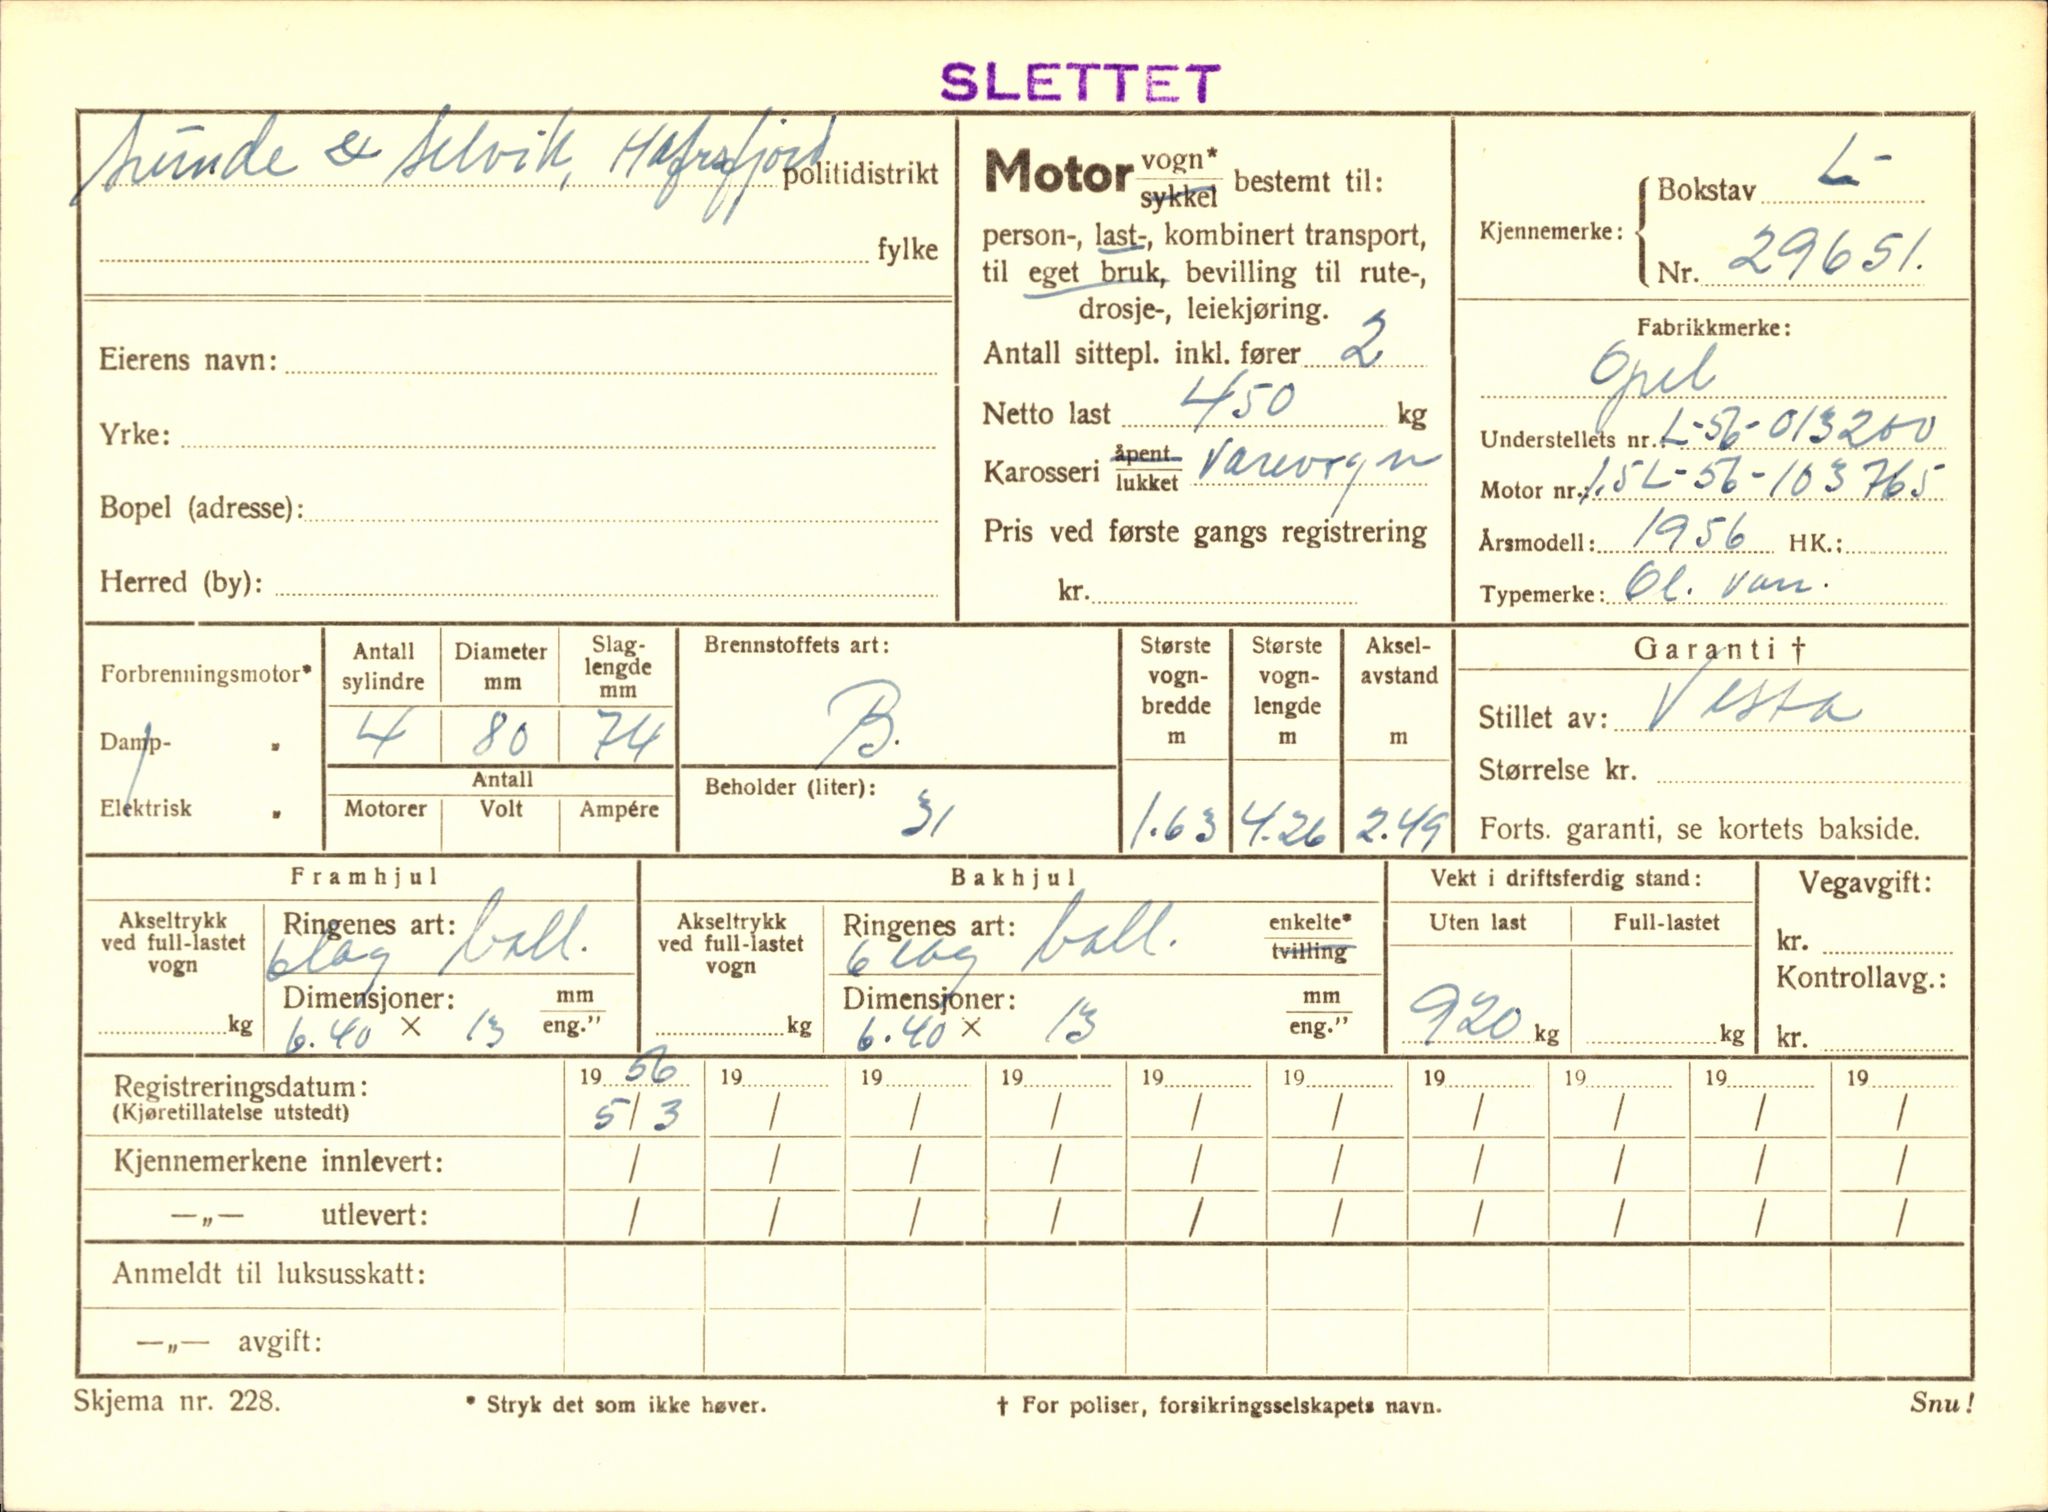 SLETTET
Sunde & Selvik, Hafrsfjord politidistrikt
fylke
Eierens navn:
Yrke:
Bopel (adresse):
Herred (by):
Motor vogn* sykkel bestemt til:
person-, last-, kombinert transport,
til eget bruk, bevilling til rute-,
drosje-, leiekjøring.
Antall sittepl. inkl. fører 2
Netto last 450 kg
Karosseri åpent lukket Varevogn
Pris ved første gangs registrering
kr.
Kjennemerke: Bokstav L-
Nr. 29651.
Fabrikkmerke:
Opel
Understellets nr.: L-56-013200
Motor nr.: 1.5L-56-103765
Årsmodell: 1956 HK.:
Typemerke: Ol. van.
Forbrenningsmotor*
Damp- „
Elektrisk „
Antall sylindre
Diameter mm
Slag-lengde mm
4 80 74
Antall
Motorer Volt Ampére
Brennstoffets art:
B.
Beholder (liter):
31
Største vogn-bredde m
1.63
Største vogn-lengde m
4.26
Aksel-avstand m
2.49
Garanti †
Stillet av: Vesta
Størrelse kr.
Forts. garanti, se kortets bakside.
Framhjul
Akseltrykk ved full-lastet vogn
kg
Ringenes art:
6 lag ball.
Dimensjoner: mm eng."
6.40 × 13
Bakhjul
Akseltrykk ved full-lastet vogn
kg
Ringenes art: enkelte* tvilling
6 lag ball.
Dimensjoner: mm eng."
6.40 × 13
Vekt i driftsferdig stand:
Uten last Full-lastet
920 kg kg
Vegavgift:
kr.
Kontrollavg.:
kr.
Registreringsdatum: 19 56 19 19 19 19 19 19 19 19 19
(Kjøretillatelse utstedt) 5/3 / / / / / / / / /
Kjennemerkene innlevert: / / / / / / / / / /
—„— utlevert: / / / / / / / / / /
Anmeldt til luksusskatt:
—„— avgift:
Skjema nr. 228. * Stryk det som ikke høver. † For poliser, forsikringsselskapets navn. Snu!